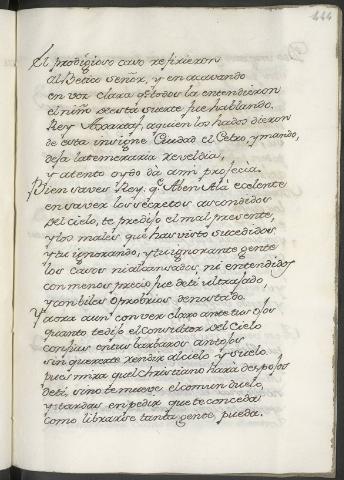 444
El prodigioso caso refirieron
Al Betico señor, y en acavando
en voz clara q̃ todos la entendieron
el niño de esta suerte fue hablando.
Rey Axataf, aquien los hados dieron
de esta insigne Ciudad el Cetro, y mando,
desa la temeraria reveldia,
y atento oydo dà a mi profecia.
Bien saves Rey, q.e Aben Alà ecelente
en saver los secretos ascondidos
del cielo, te predijo el mal presente,
y los males que has visto sucedidos
y tu ignorando, y tu ignorante gente
los casos ni alcansados, ni entendidos
con menos precio fue de ti ultrajado
y con biles oprobrios denostado.
Y aora aun con ver claro ante tus ojos
quanto te dijo el Consultor del Cielo
confias en tus barbaros antojos
sin quererte rendir al cielo y suelo
pues mira quel christiano harà despojos
de ti, sino te mueve el comun duelo,
y tardas en pedir que te conceda
como librarse tanta gente pueda.